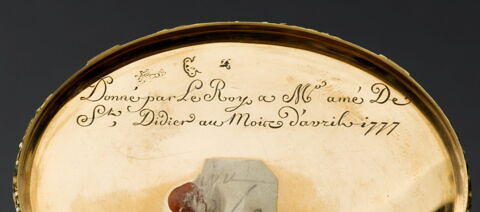 Donné par Le Roy a Mr amé De
St. Didier au Mois d'avril 1777